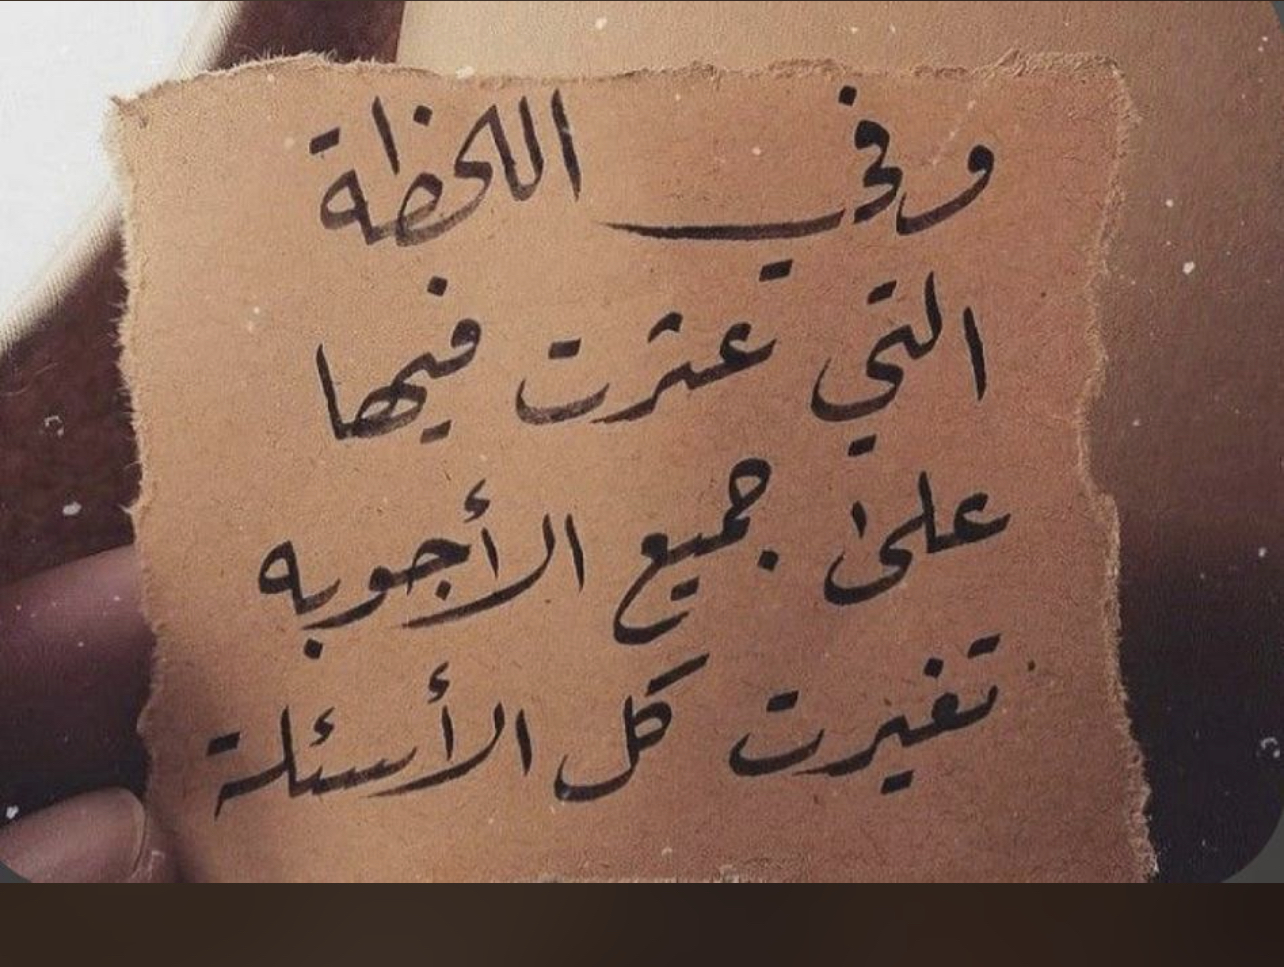 وفي اللحظة
التي عثرت فيها
على جميع الأجوبه
تغيرت كل الأسئلة